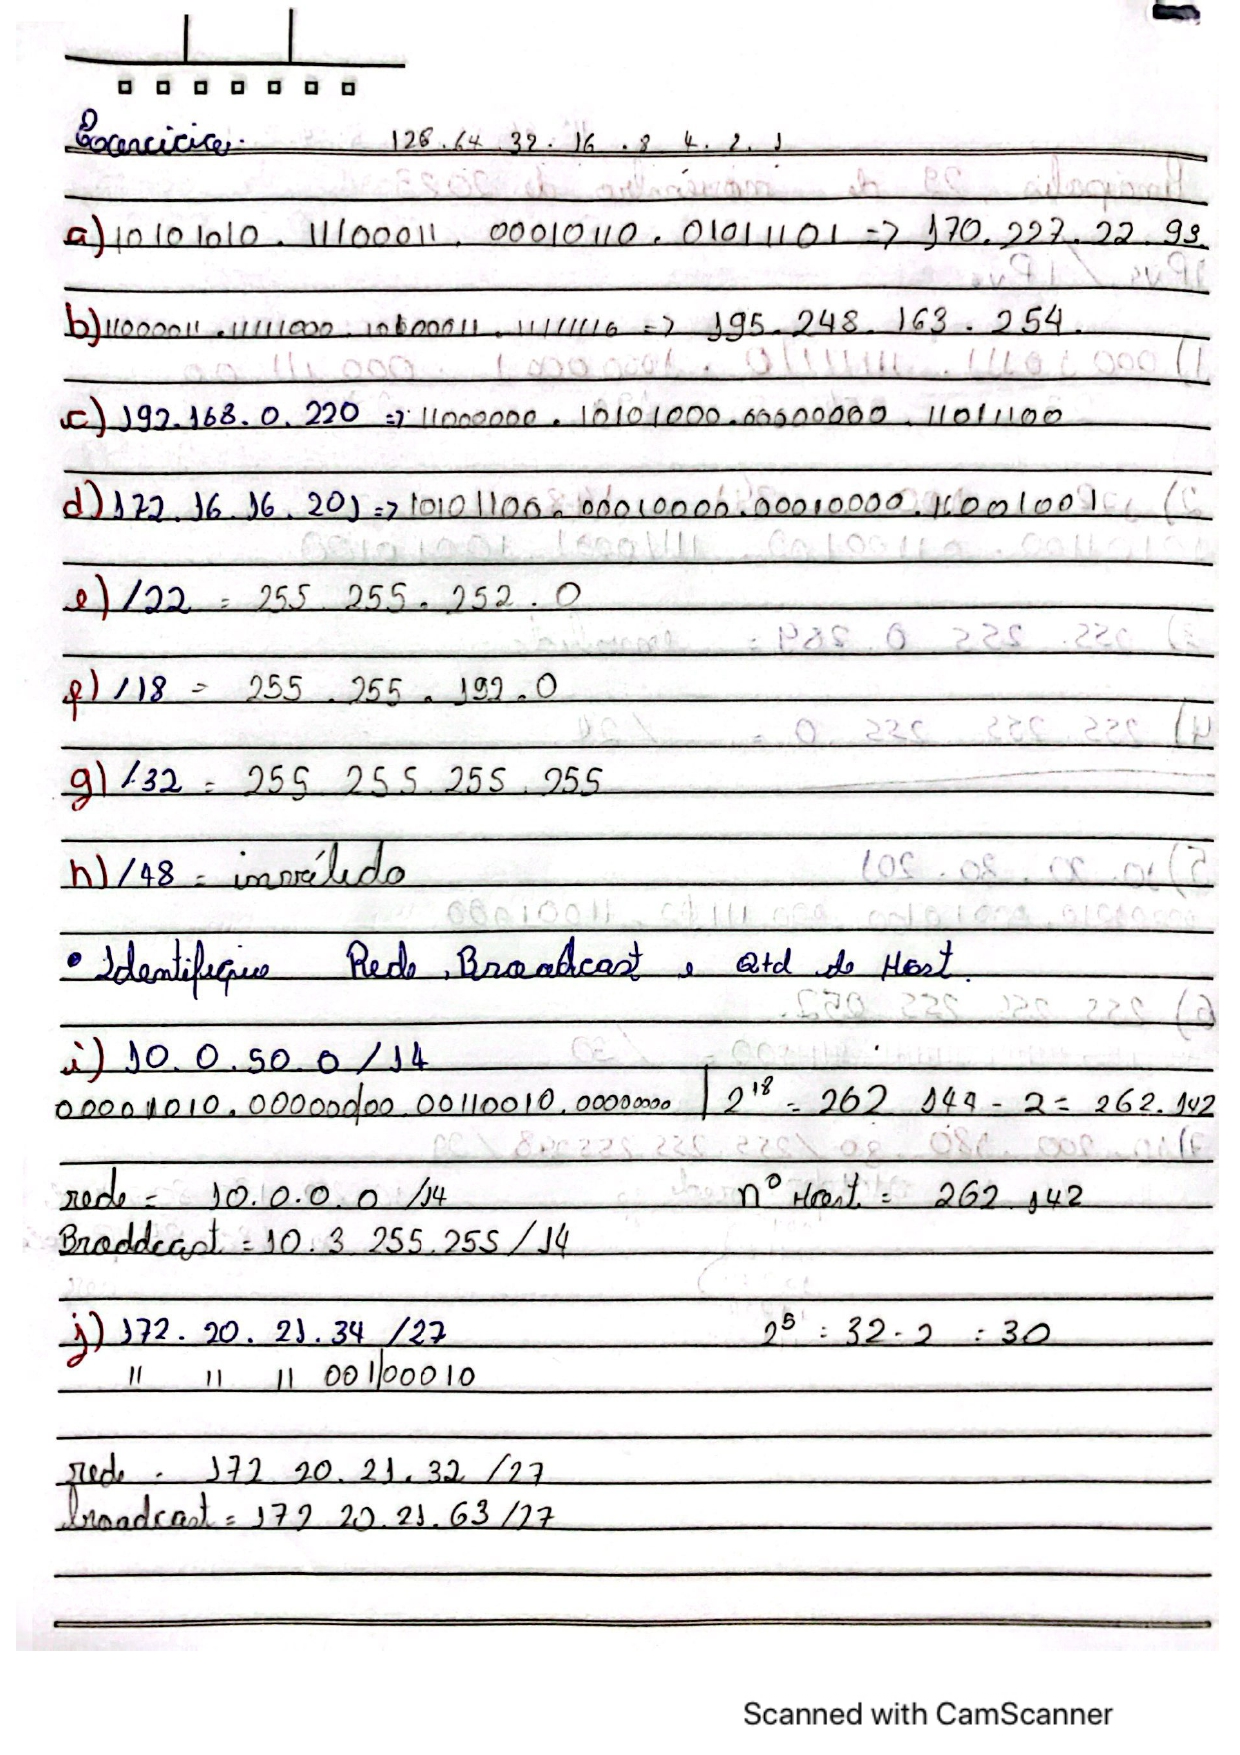 Exercícios. 128.64.32.16.8 4.2.1
a) 10101010.11100011.00010110.01011101 => 170.227.22.93
b) 11000011.11111000.10100011.11111110 => 195.248.163.254.
c) 192.168.0.220 => 11000000.10101000.00000000.11011100
d) 172.16.16.201 => 10101100.00010000.00010000.11001001
e) /22 = 255.255.252.0
f) /18 = 255.255.192.0
g) /32 = 255 255.255.255
h) /48 = inválido
• Identifique Rede, Broadcast e Qtd de Host.
i) 10.0.50.0/14
00001010.000000|00.00110010.00000000 | 2^18 = 262 144 - 2 = 262.142
rede = 10.0.0.0 /14 nº Host = 262.142
Broddcast = 10.3 255.255/14
j) 172.20.21.34 /27 2^5 = 32-2 = 30
" " " 001|00010
rede = 172 20.21.32 /27
broadcast = 172 20.21.63 /27
Scanned with CamScanner